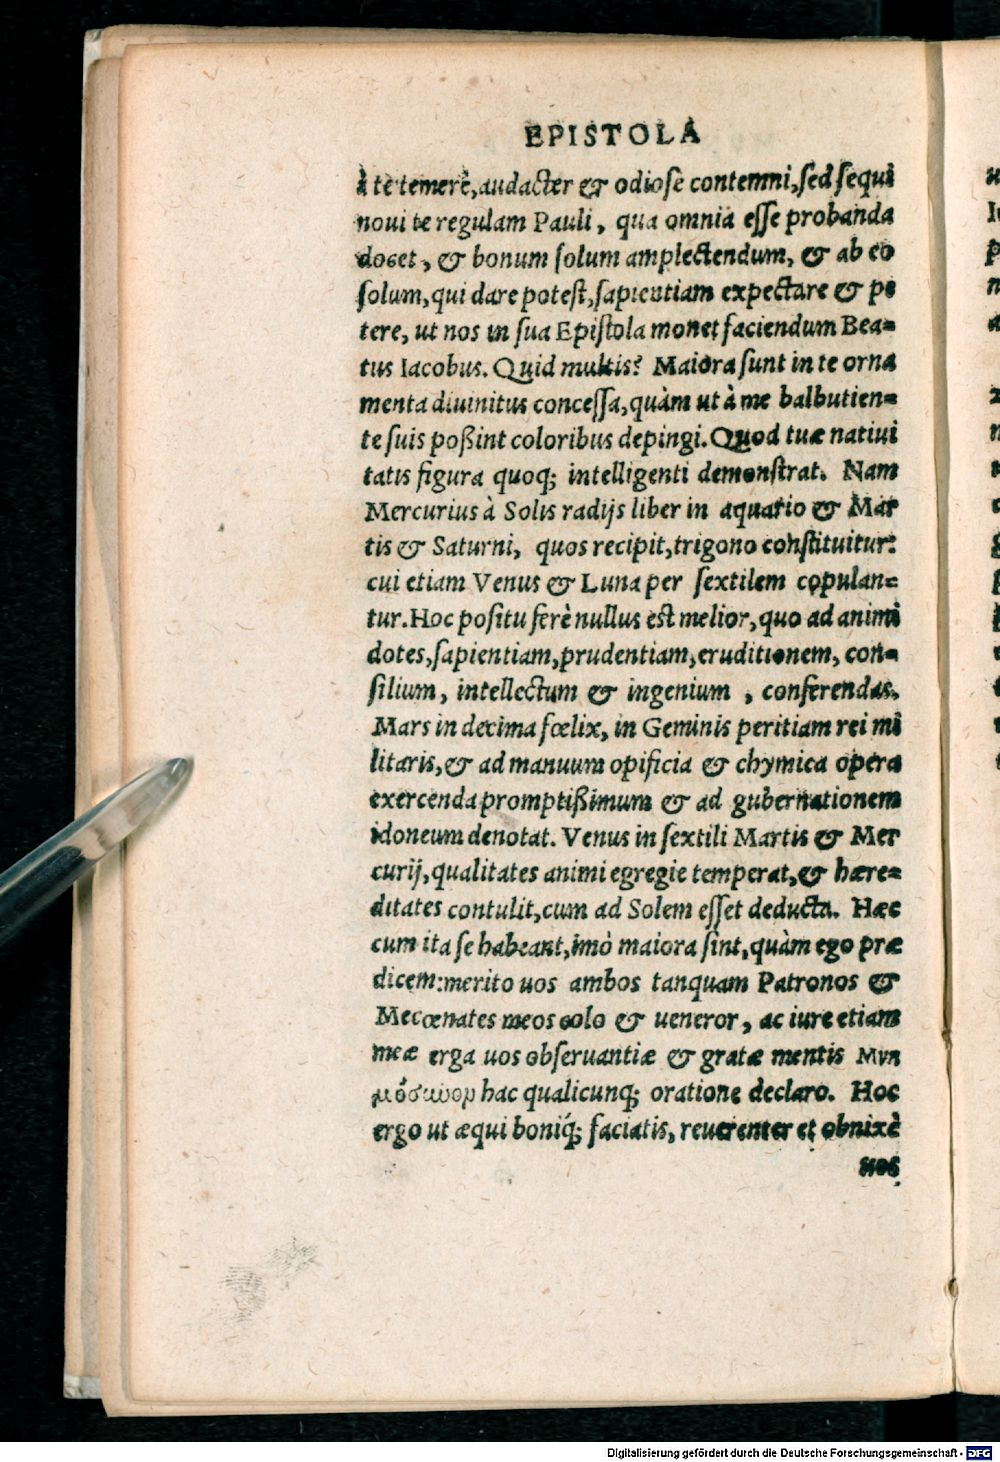 EPISTOLA
à te temerè, audacter & odiosè contemni, sed sequi
noui te regulam Pauli, qua omnia esse probanda
docet, & bonum solum amplectendum, & ab eo
solum, qui dare potest, sapientiam expectare & pe
tere, ut nos in sua Epistola monet faciendum Bea=
tus Iacobus. Quid multis? Maiora sunt in te orna
menta diuinitus concessa, quàm ut à me balbutien=
te suis poßint coloribus depingi. Quod tuæ natiui
tatis figura quoq; intelligenti demonstrat. Nam
Mercurius à Solis radijs liber in aquario & Mar
tis & Saturni, quos recipit, trigono constituitur:
cui etiam Venus & Luna per sextilem copulan=
tur. Hoc positu ferè nullus est melior, quo ad animi
dotes, sapientiam, prudentiam, eruditionem, con=
silium, intellectum & ingenium, conferendas.
Mars in decima fœlix, in Geminis peritiam rei mi
litaris, & ad manuum opificia & chymica opera
exercenda promptißimum & ad gubernationem
idoneum denotat. Venus in sextili Martis & Mer
curij, qualitates animi egregie temperat, & hære=
ditates contulit, cum ad Solem esset deducta. Hæc
cum ita se habeant, imò maiora sint, quàm ego præ
dicem: merito uos ambos tanquam Patronos &
Mecœnates meos colo & ueneror, ac iure etiam
meæ erga uos obseruantiæ & gratæ mentis Μνη
μόσυνον hac qualicunq; oratione declaro. Hoc
ergo ut æqui boniq́; faciatis, reuerenter et obnixè
uos
Digitalisierung gefördert durch die Deutsche Forschungsgemeinschaft - DFG